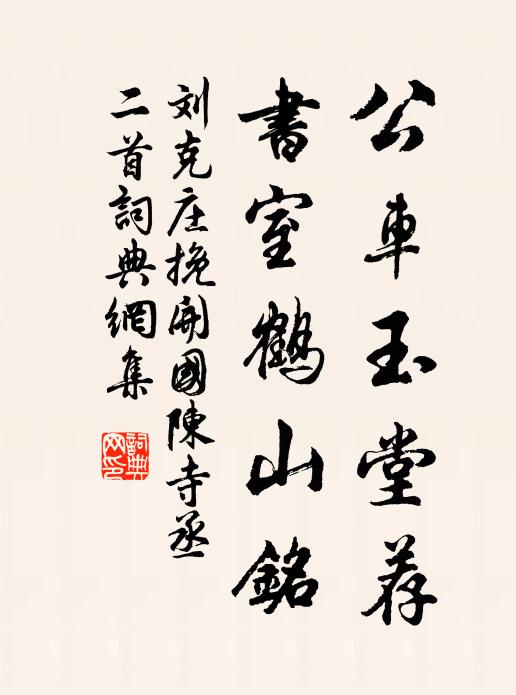 公車玉堂荐
書室鶴山銘
刘克庄挽開國陳寺丞
二首詞典網集
詞典網印